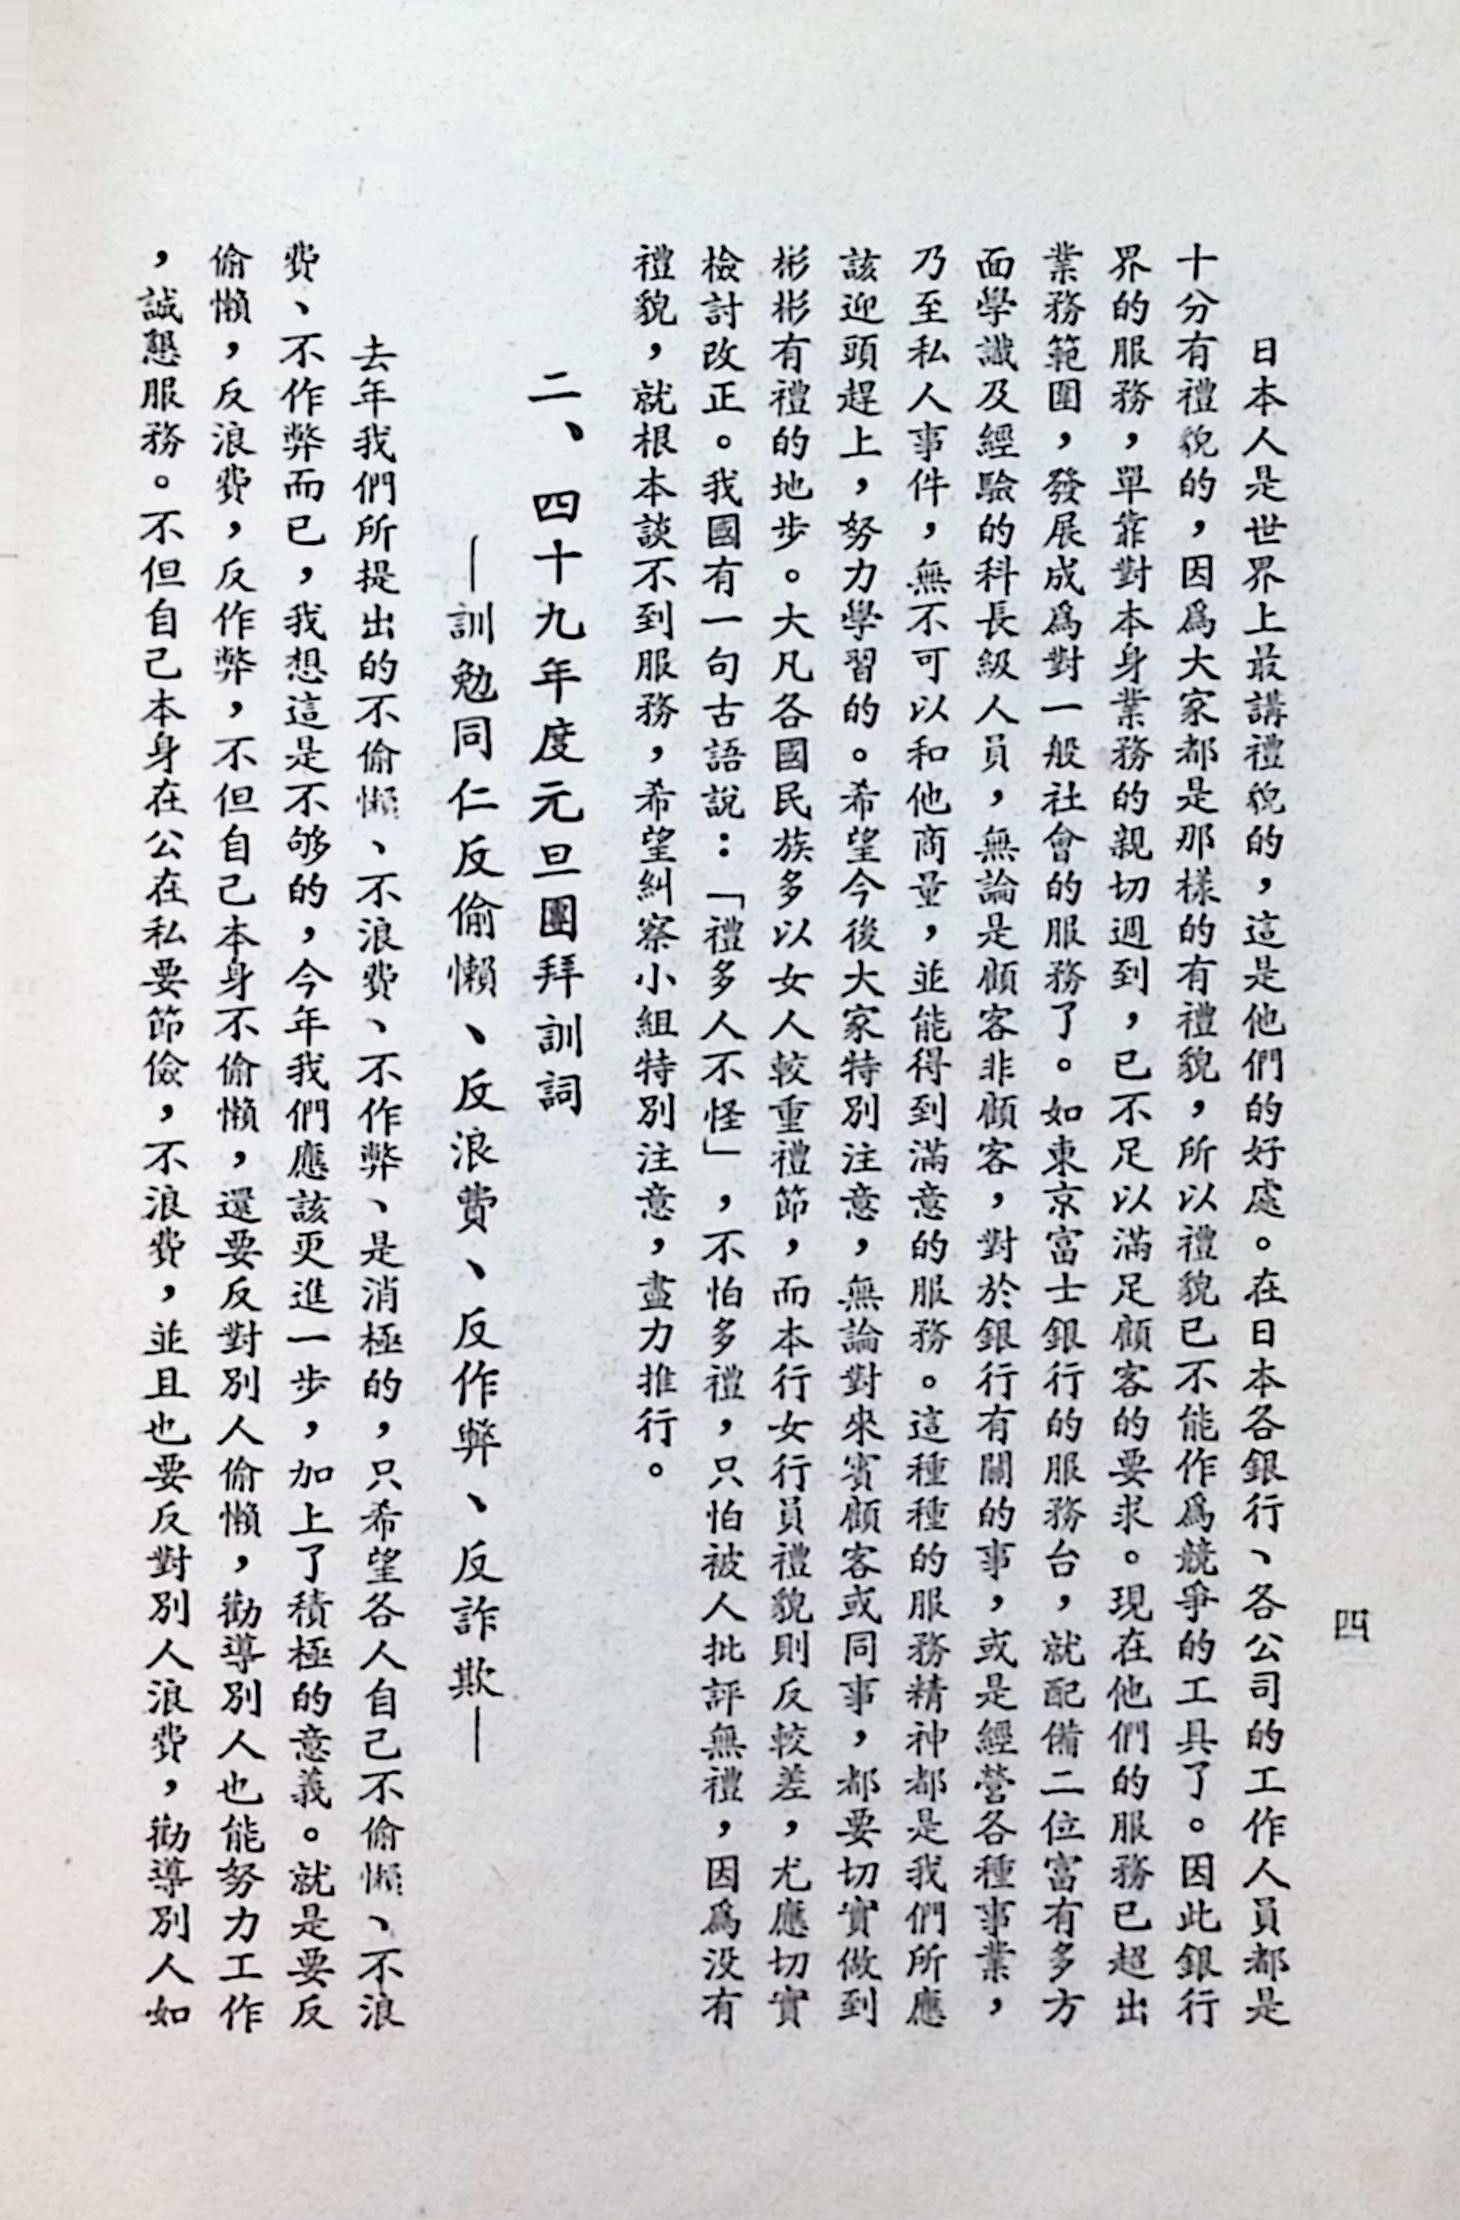 四
日本人是世界上最講禮貌的，這是他們的好處。在日本各銀行、各公司的工作人員都是
十分有禮貌的，因爲大家都是那樣的有禮貌，所以禮貌已不能作爲競爭的工具了。因此銀行
界的服務，單靠對本身業務的親切週到，已不足以滿足顧客的要求。現在他們的服務已超出
業務範圍，發展成爲對一般社會的服務了。如東京富士銀行的服務台，就配備二位富有多方
面學識及經驗的科長級人員，無論是顧客非顧客，對於銀行有關的事，或是經營各種事業，
乃至私人事件，無不可以和他商量，並能得到滿意的服務。這種種的服務精神都是我們所應
該迎頭趕上，努力學習的。希望今後大家特別注意，無論對來賓顧客或同事，都要切實做到
彬彬有禮的地步。大凡各國民族多以女人較重禮節，而本行女行員禮貌則反較差，尤應切實
檢討改正。我國有一句古語說：「禮多人不怪」，不怕多禮，只怕被人批評無禮，因爲没有
禮貌，就根本談不到服務，希望糾察小組特別注意，盡力推行。
二、四十九年度元旦團拜訓詞
—訓勉同仁反偷懶、反浪費、反作弊、反詐欺—
去年我們所提出的不偷懶、不浪費、不作弊、是消極的，只希望各人自己不偷懶、不浪
費、不作弊而已，我想這是不够的，今年我們應該更進一步，加上了積極的意義。就是要反
偷懶，反浪費，反作弊，不但自己本身不偷懶，還要反對別人偷懶，勸導別人也能努力工作
，誠懇服務。不但自己本身在公在私要節儉，不浪費，並且也要反對別人浪費，勸導別人如